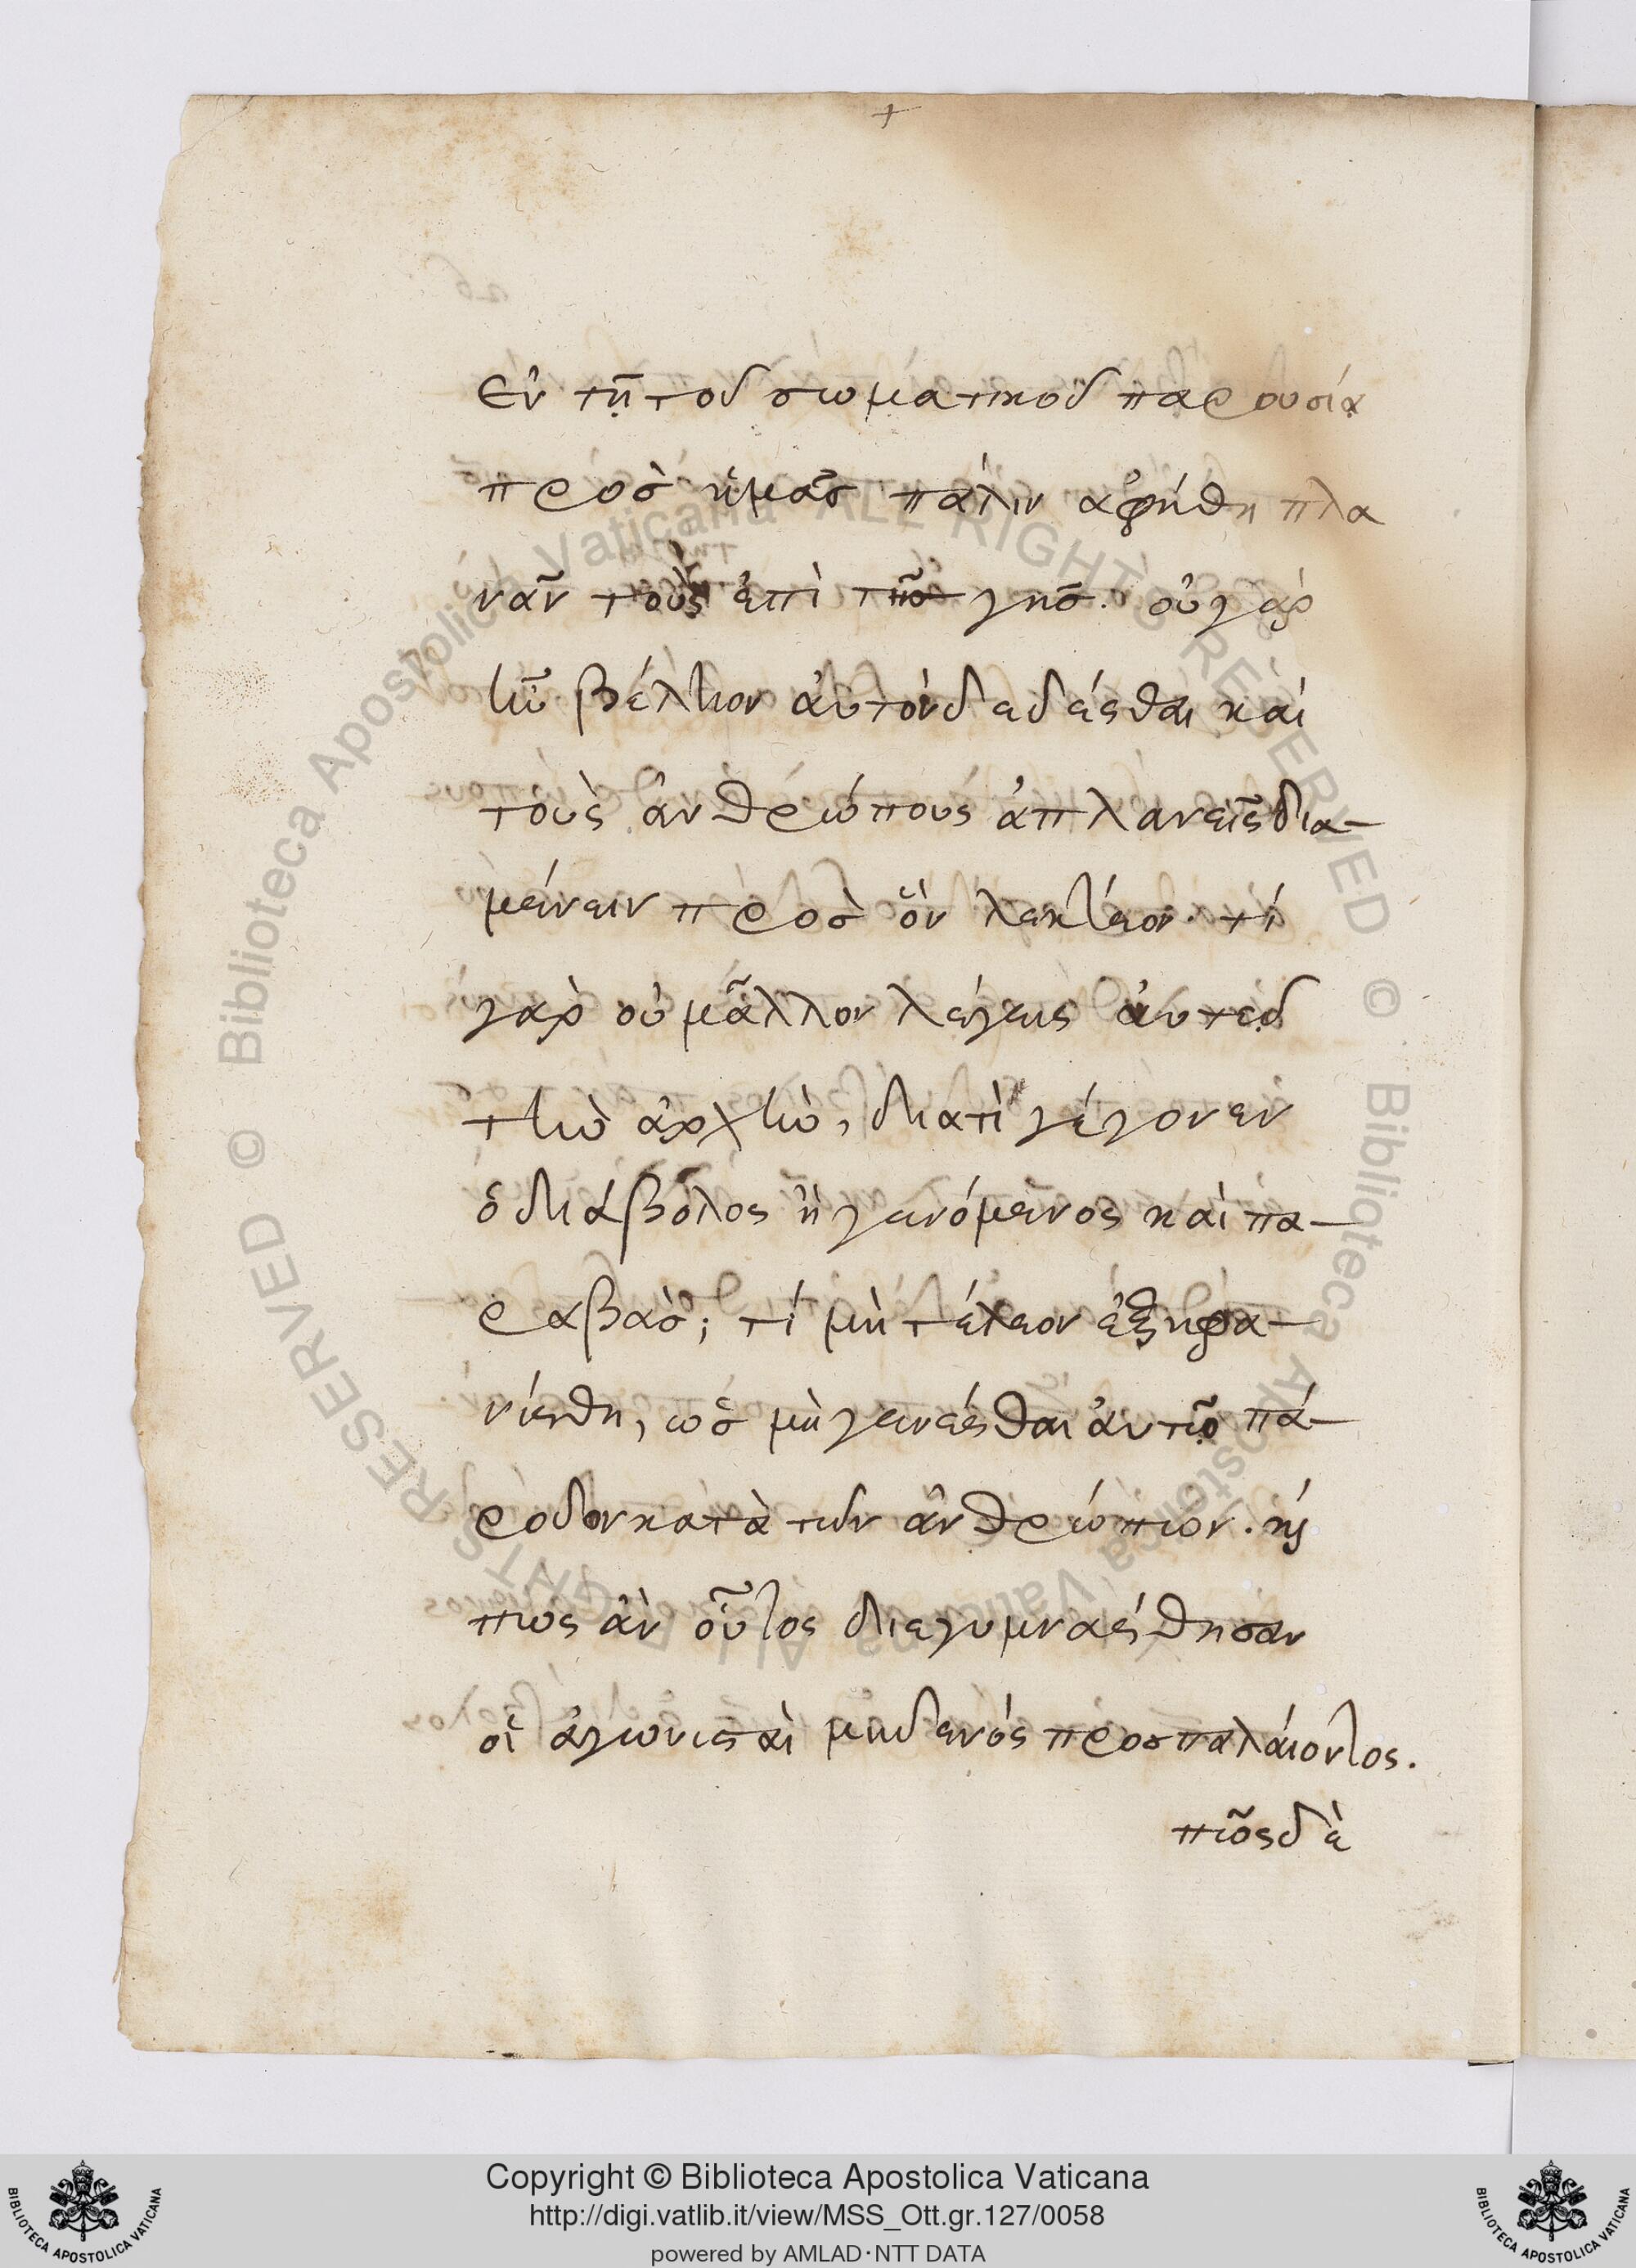 +
Ἐν τῇ τοῦ σωματικοῦ παρουσίᾳ
πρὸσ ἡμᾶσ πάλιν ἀφήθη πλα
νᾶν τοὺς ἐπὶ τῆσ γῆσ. οὐ γὰρ
ἦν βέλτιον ἀυτὸν δεδέσθαι καί
τοὺς ἀνθρώπους ἀπλανεῖς δια-
μένειν πρὸσ ὃν λεκτέον. τί
γὰρ οὐ μᾶλλον λέγεις ἀυτοῦ
τὴν ἀρχὴν, διατὶ γέγονεν
ὁ διάβολος ἢ γενόμενος καὶ πα-
ραβὰσ; τί μὴ τέλεον ἐξηφα-
νίσθη, ὡσ μὴ γενέσθαι ἀυτῷ πά-
ροδον κατὰ τῶν ἀνθρώπων. καὶ
πως ἂν οὗτος διεγυμνάσθησαν
οἱ ἀγωνισταὶ μηδενός προσπαλάιοντος.
πῶς δὲ
© Biblioteca Apostolica Vaticana ALL RIGHTS RESERVED © Biblioteca Apostolica Vaticana ALL RIGHTS RESERVED
Copyright © Biblioteca Apostolica Vaticana
http://digi.vatlib.it/view/MSS_Ott.gr.127/0058
powered by AMLAD·NTT DATA
BIBLIOTECA APOSTOLICA VATICANA
BIBLIOTECA APOSTOLICA VATICANA